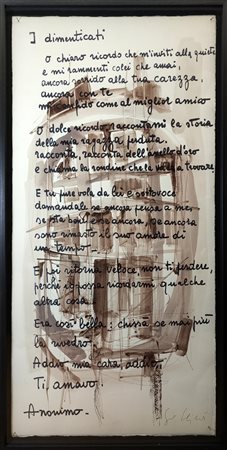 I dimenticati
O chiaro ricordo che m'inviti alla quiete
e mi rammenti colei che amai,
ancora sorrido alla tua carezza,
ancora con te
mi confido come al miglior amico
O dolce ricordo, raccontami la storia
della mia ragazza perduta,
racconta, racconta dell'anello d'oro
e chiama la rondine che la vada a trovare.
E tu pure vola da lei e sottovoce
domandale se ancora pensa a me,
se sta bene, se ancora, se ancora
sono rimasto il suo amore di
un tempo.
E poi ritorna veloce, non ti perdere,
perché io possa ricordarmi qualche
altra cosa.
Era così bella; chissà se mai più
la rivedrò.
Addio, mia cara, addio,
Ti amavo!
Anonimo.